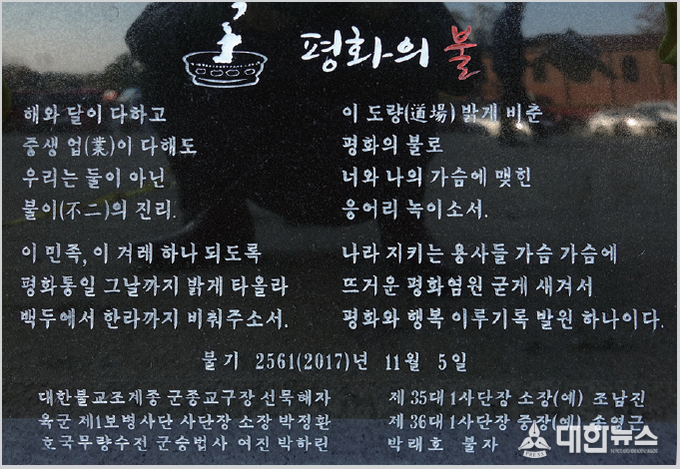 평화의 불
해와 달이 다하고
중생 업(業)이 다해도
우리는 둘이 아닌
불이(不二)의 진리.
이 도량(道場) 밝게 비춘
평화의 불로
너와 나의 가슴에 맺힌
응어리 녹이소서.
이 민족, 이 겨레 하나 되도록
평화통일 그날까지 밝게 타올라
백두에서 한라까지 비춰주소서.
나라 지키는 용사들 가슴 가슴에
뜨거운 평화염원 굳게 새겨서
평화와 행복 이루기록 발원 하나이다.
불기 2561(2017)년 11월 5일
대한불교조계종 군종교구장 선묵혜자
육군 제1보병사단 사단장 소장 박정환
호국무량수전 군승법사 여진 박하린
제 35대 1사단장 소장(예) 조남진
제 36대 1사단장 중장(예) 송영근
박래호 불자
대한뉴스
PRESS